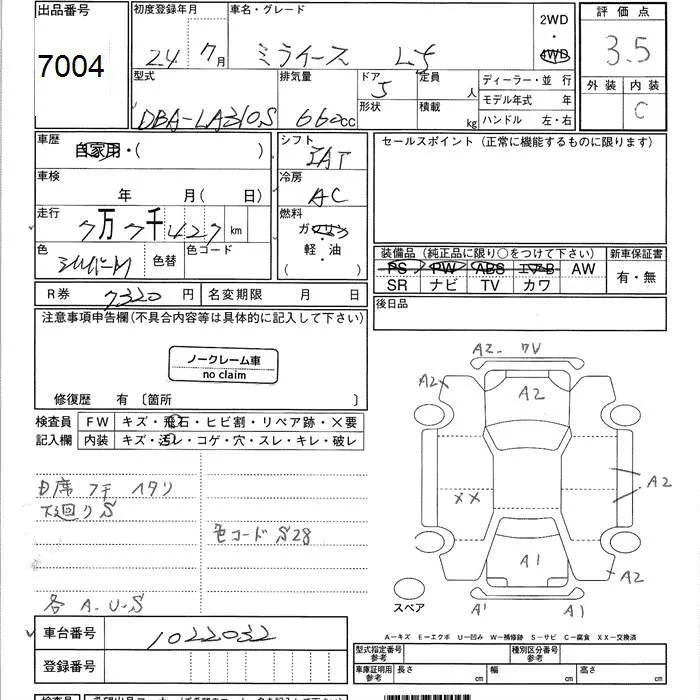 出品番号
7004
初度登録年月
24 7月
車名・グレード
ミライース L
2WD
・
4WD
評価点
3.5
外装 内装
C
型式
DBA-LA310S
排気量
660cc
ドア
5
形状
定員
人
積載
kg
ディーラー・並 行
モデル年式 年
ハンドル 左・右
車歴
自家用・( )
シフト
IAT
セールスポイント (正常に機能するものに限ります)
車検
年 月( 日)
冷房
AC
走行
7万7千427km
燃料
ガソリン
・
軽・油
( )
色
シルバーM
色替
色コード
装備品 (純正品に限り○をつけて下さい)
新車保証書
PS PW ABS エアB AW
SR ナビ TV カワ
有・無
R券 7320 円
名変期限 月 日
後日品
注意事項申告欄(不具合内容等は具体的に記入して下さい)
ノークレーム車
no claim
修復歴 有 〔箇所 〕
検査員
記入欄
FW キズ・飛石・ヒビ割・リペア跡・×要
内装 キズ・汚レ・コゲ・穴・スレ・キレ・破レ
下廻りS
色コード S28
各 A.U.S
A2
A2
A2
XX
A2
A1
A2
A1
A1
スペア
A−キズ E−エクボ U−凹み W−補修跡 S−サビ C−腐食 XX−交換済
車台番号
1022032
登録番号
型式指定番号
参考
種別区分番号
参考
車庫証明用
参考
長さ cm
幅 cm
高さ cm